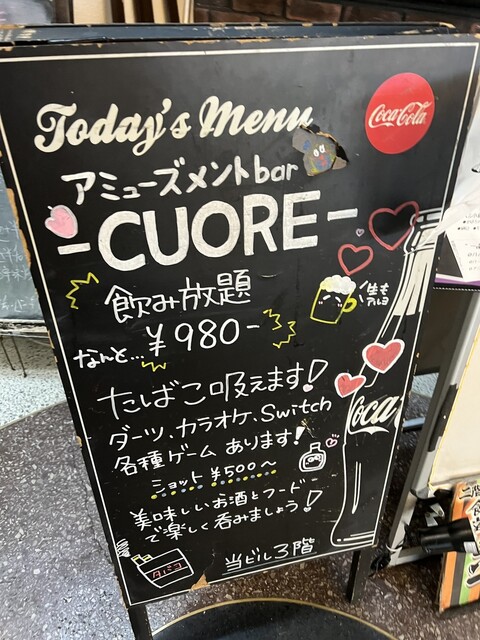 Today's Menu
Coca-Cola
アミューズメントbar
-CUORE-
飲み放題
生も
アルヨ
なんと…¥980-
たばこ吸えます!
ダーツ、カラオケ、Switch
各種ゲームあります!
Coca
ショット ¥500~
美味しいお酒とフード
で楽しく呑みましょう!
タバコ
当ビル3階